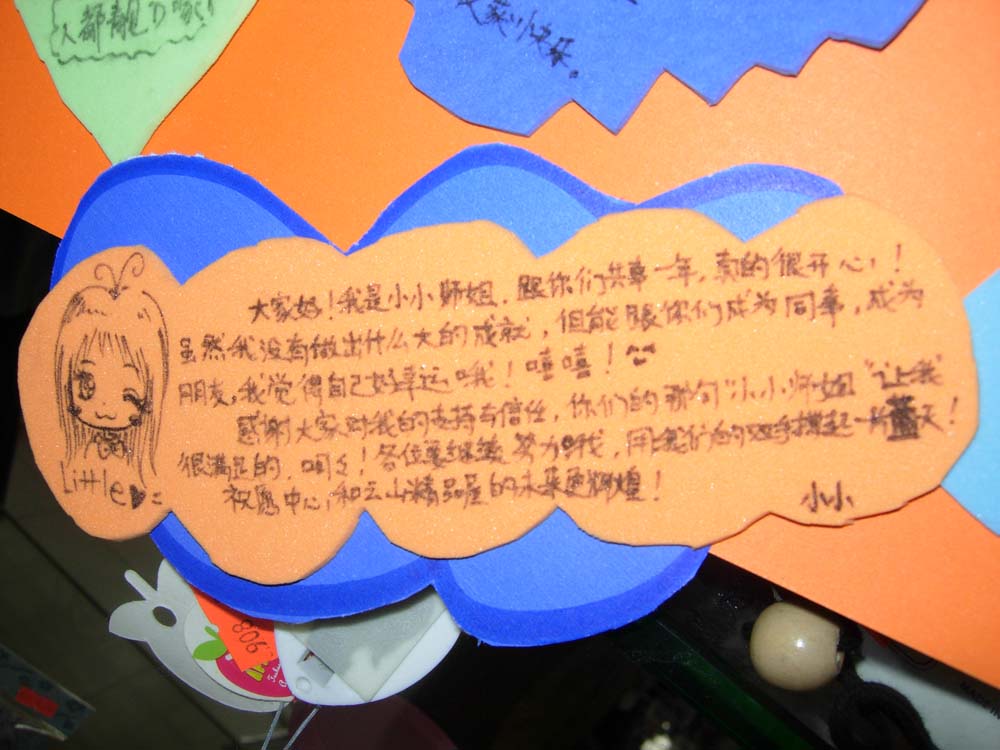 人都靓D啦!
快乐。
大家好！我是小小师姐，跟你们共事一年，真的很开心！
虽然我没有做出什么大的成就，但能跟你们成为同事，成为
朋友，我觉得自己好幸运哦！嘻嘻！
感谢大家对我的支持与信任，你们的那句“小小师姐”让我
很满足的，呵呵！各位要继续努力哦，用我们的双手撑起一片蓝天！
祝愿中心和云山精品屋的未来更辉煌！
小小
Little
908